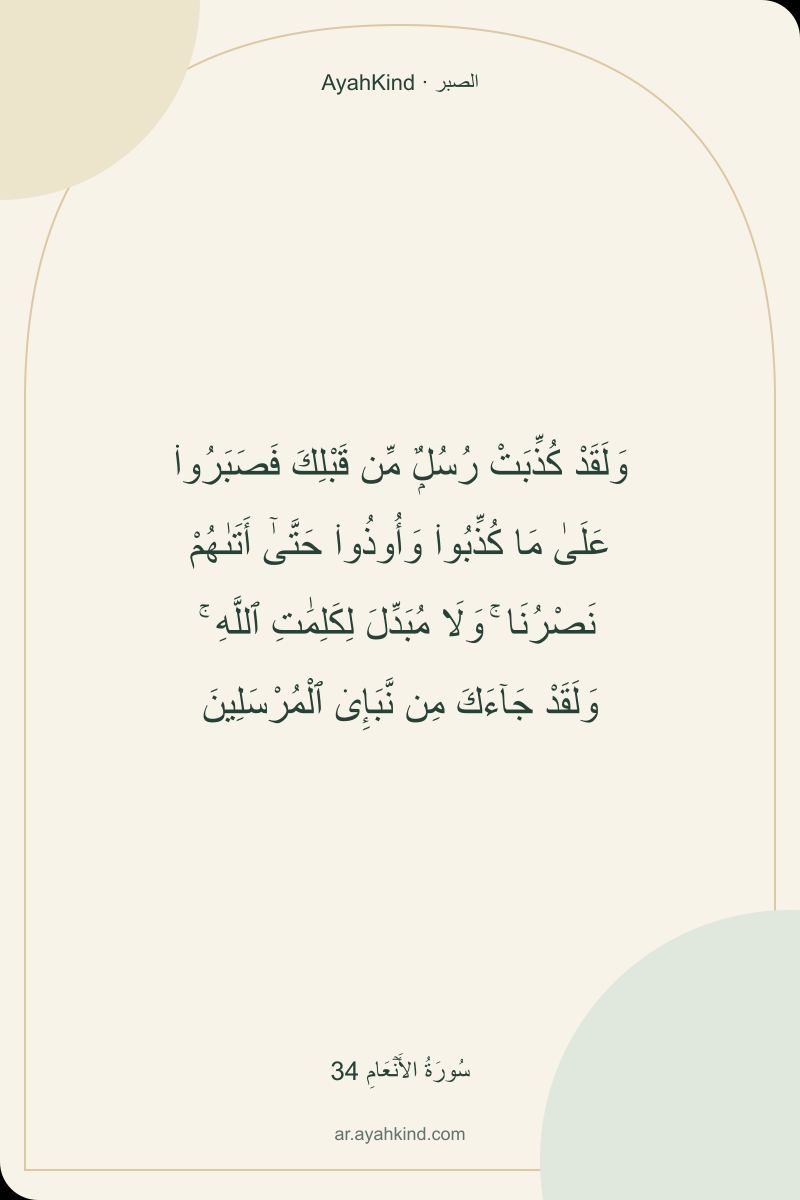 AyahKind · الصبر
وَلَقَدْ كُذِّبَتْ رُسُلٌۭ مِّن قَبْلِكَ فَصَبَرُوا۟
عَلَىٰ مَا كُذِّبُوا۟ وَأُوذُوا۟ حَتَّىٰٓ أَتَىٰهُمْ
نَصْرُنَا ۚ وَلَا مُبَدِّلَ لِكَلِمَٰتِ ٱللَّهِ ۚ
وَلَقَدْ جَآءَكَ مِن نَّبَإِى۟ ٱلْمُرْسَلِينَ
سُورَةُ الأَنۡعَامِ 34
ar.ayahkind.com